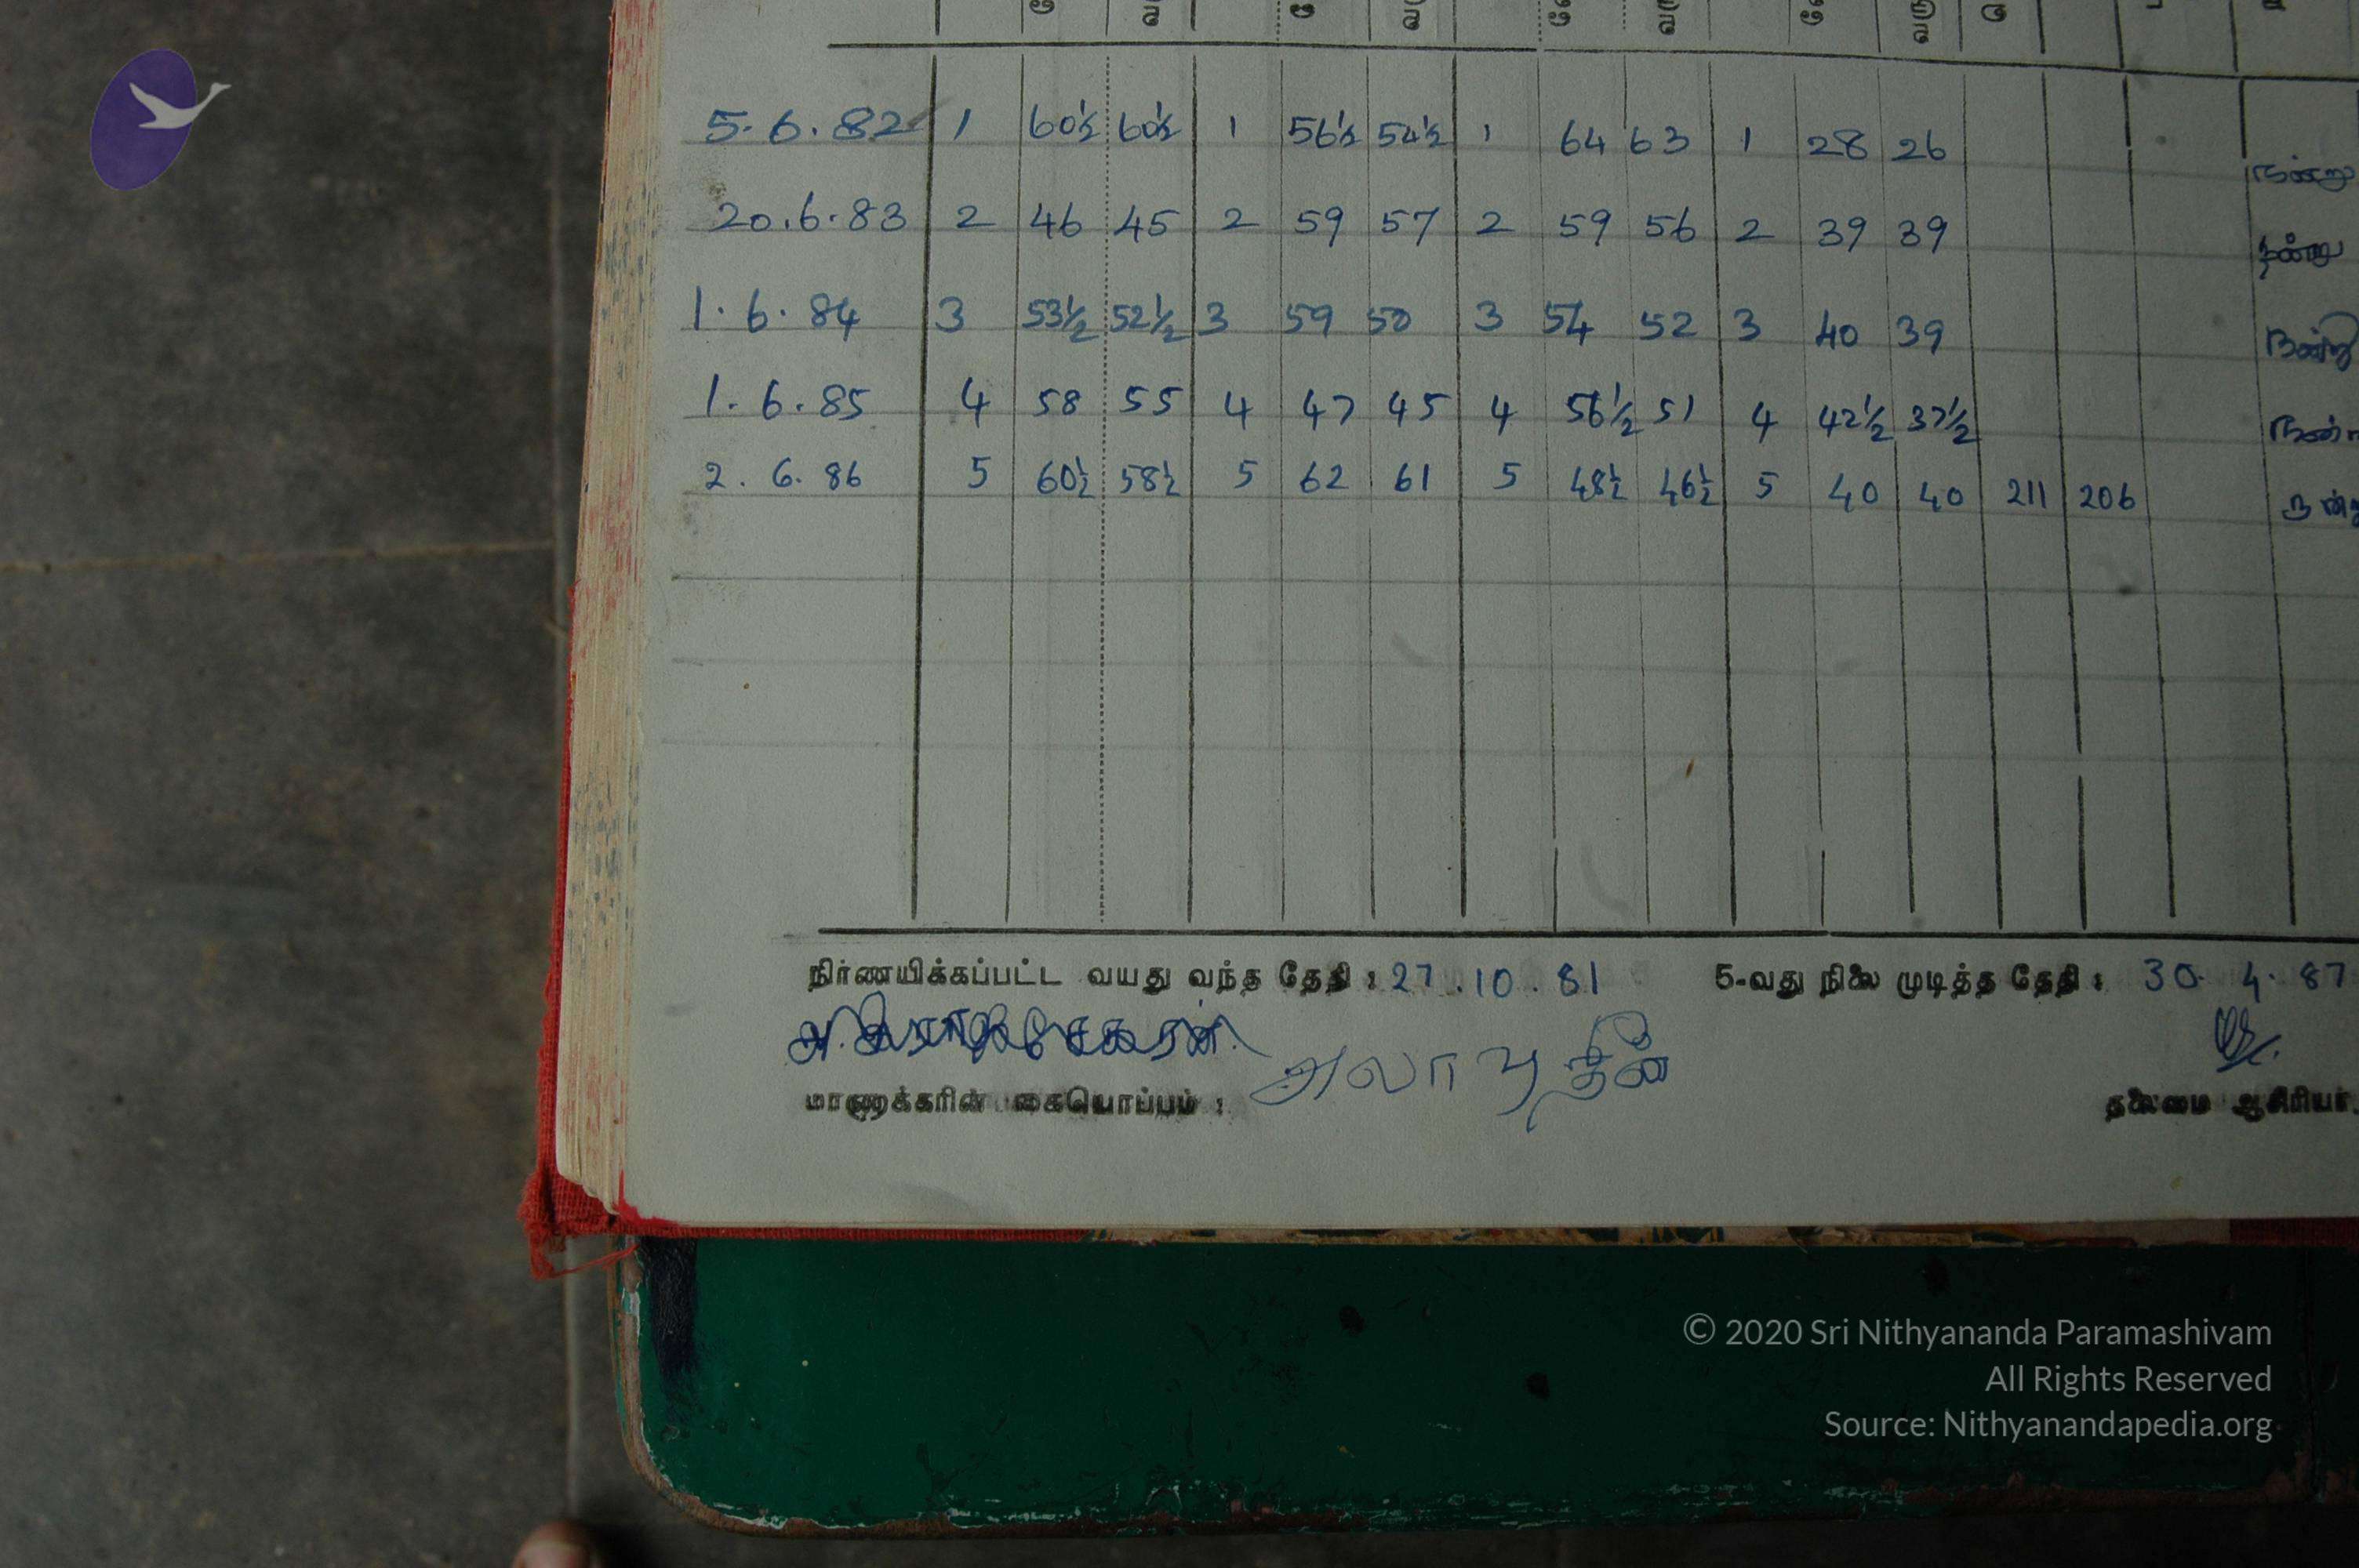 5.6.82 1 60½ 60½ 1 56½ 54½ 1 64 63 1 28 26 நன்று
20.6.83 2 46 45 2 59 57 2 59 56 2 39 39 நன்று
1.6.84 3 53½ 52½ 3 59 50 3 54 52 3 40 39 நன்று
1.6.85 4 58 55 4 47 45 4 56½ 51 4 42½ 37½
2.6.86 5 60½ 58½ 5 62 61 5 48½ 46½ 5 40 40 211 206
நிர்ணயிக்கப்பட்ட வயது வந்த தேதி : 27.10.81 5-வது நிலை முடித்த தேதி : 30.4.87
அலாவுதீன்
மாணாக்கரின் கையொப்பம் : தலைமை ஆசிரியர்.
© 2020 Sri Nithyananda Paramashivam
All Rights Reserved
Source: Nithyanandapedia.org